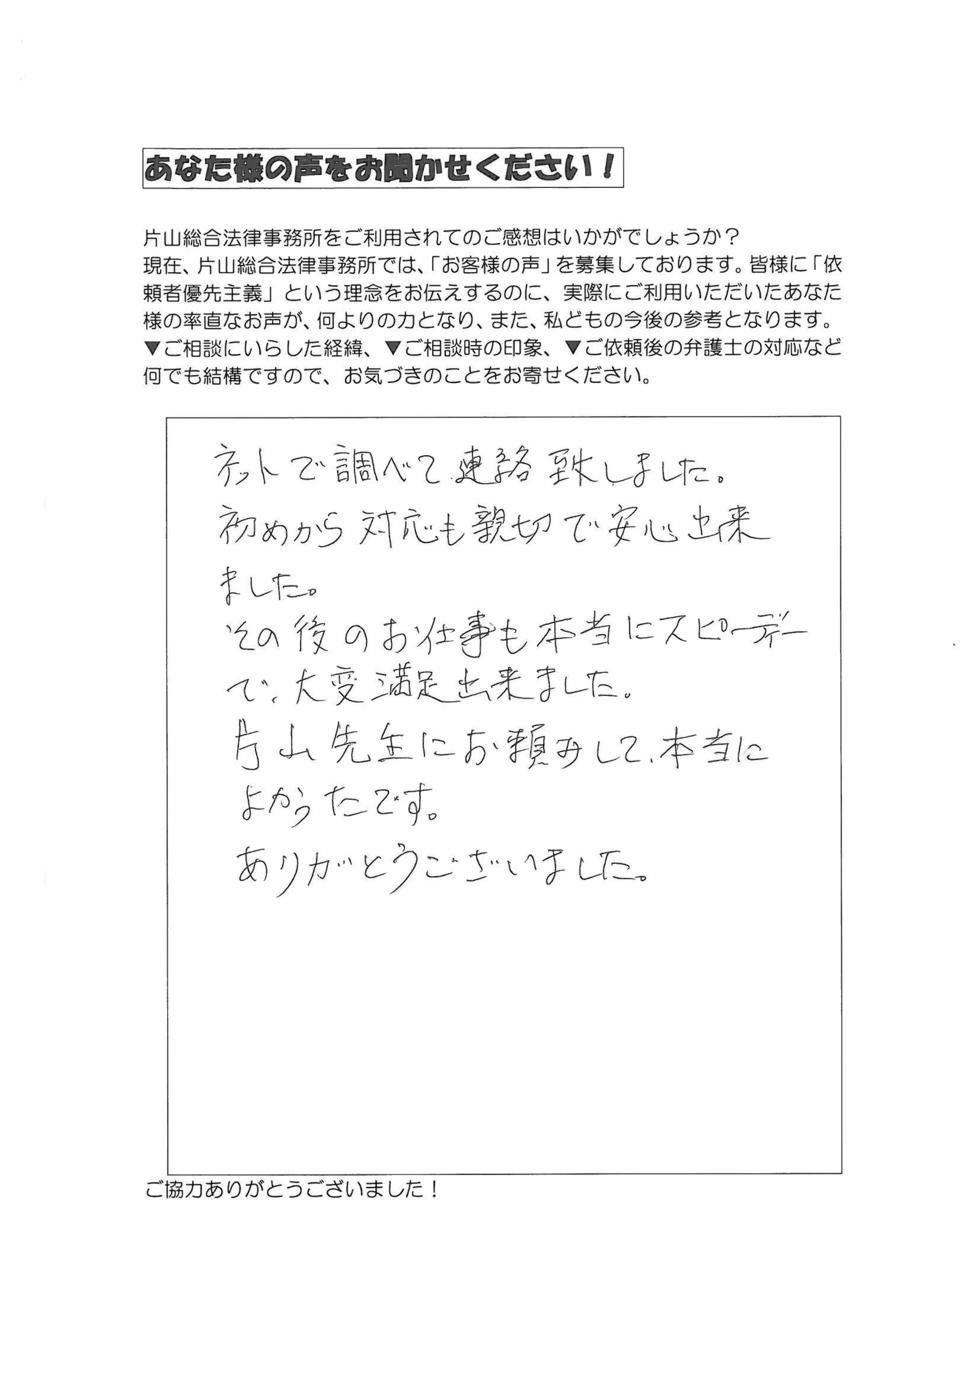 あなた様の声をお聞かせください！
片山総合法律事務所をご利用されてのご感想はいかがでしょうか？
現在、片山総合法律事務所では、「お客様の声」を募集しております。皆様に「依
頼者優先主義」という理念をお伝えするのに、実際にご利用いただいたあなた
様の率直なお声が、何よりの力となり、また、私どもの今後の参考となります。
▼ご相談にいらした経緯、▼ご相談時の印象、▼ご依頼後の弁護士の対応など
何でも結構ですので、お気づきのことをお寄せください。
ネットで調べて連絡致しました。
初めから対応も親切で安心出来
ました。
その後のお仕事も本当にスピーデー
で、大変満足出来ました。
片山先生にお頼みして、本当に
よかったです。
ありがとうございました。
ご協力ありがとうございました！